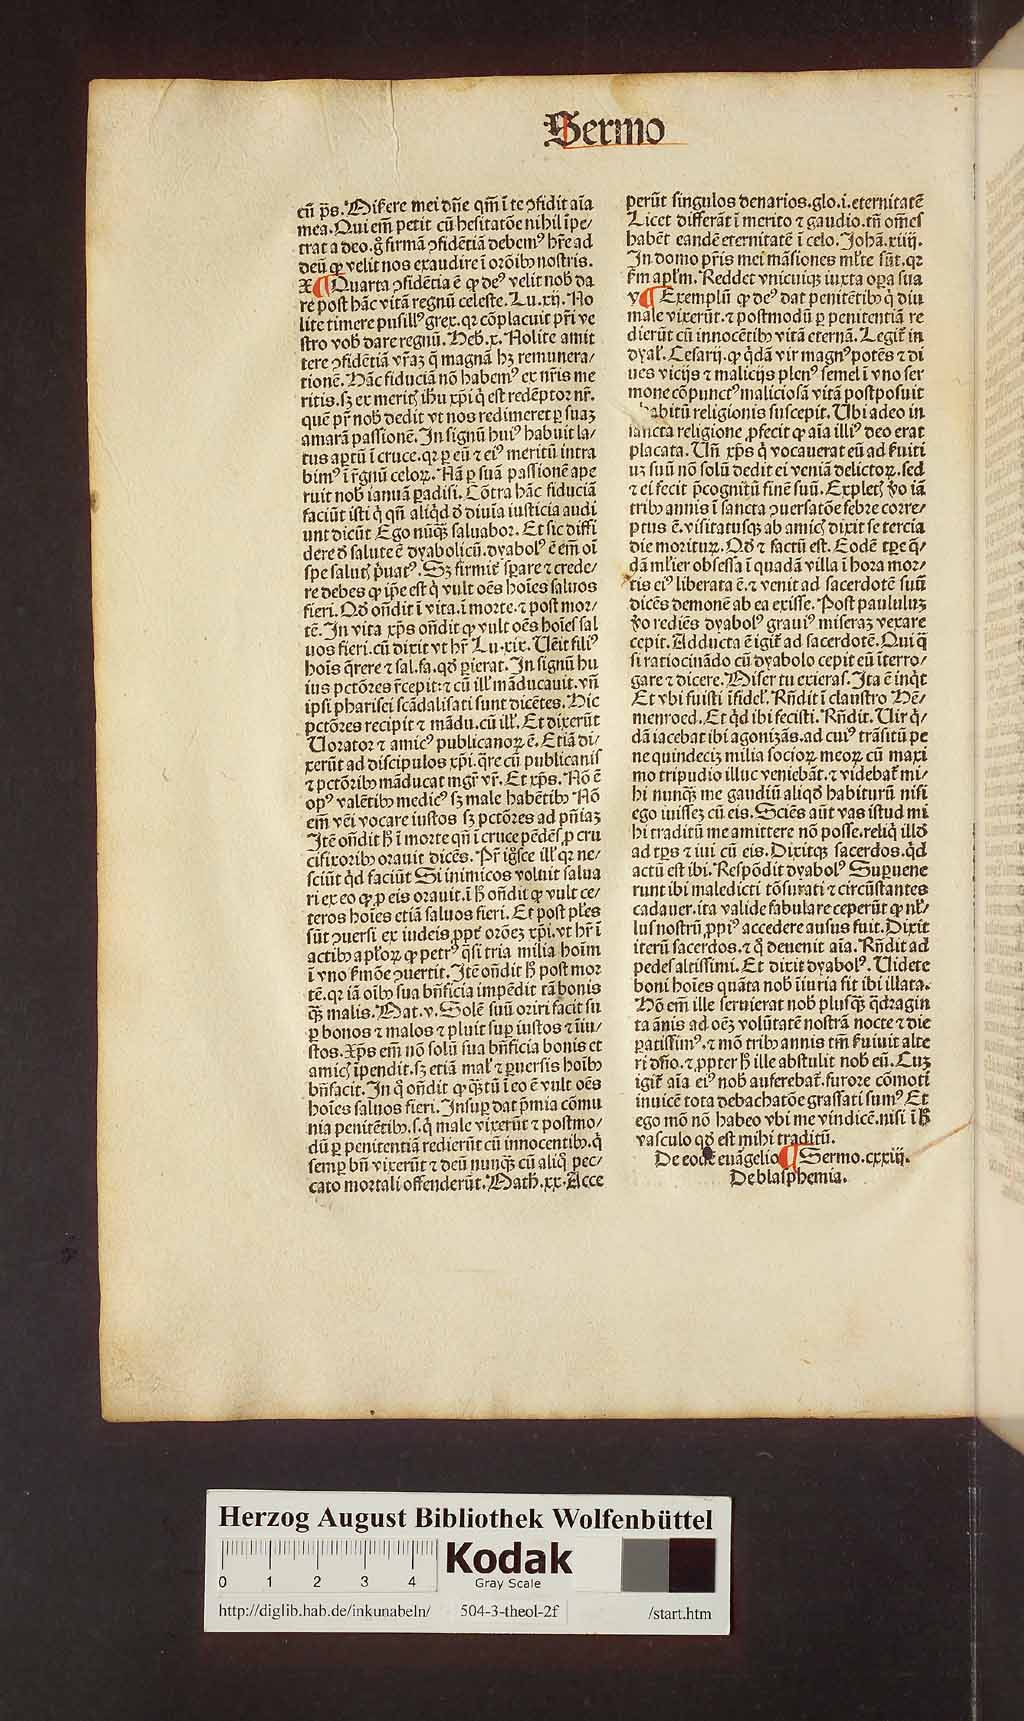 Sermo
cū p̄s. Miserere mei dn̄e qm̄ ī te ꝯfidit aīa
mea. Qui em̄ petit cū hesitatōe nihil īpe/
trat a deo. g̊ firmā ꝯfidētiā debemꝰ hr̄e ad
deū ꝙ velit nos exaudire ī orōibꝫ nostris.
X ¶ Quarta ꝯfidētia ē ꝙ deꝰ velit nob̄ da
re post hāc vitā regnū celeste. Lu. xij. No
lite timere pusillꝰ grex. qꝛ cōplacuit pr̄i ve
stro vob̄ dare regnū. Heb̄. x. Nolite amit
tere ꝯfidētiā vr̄aꝫ q̄ magnā hꝫ remunera/
tionē. Hāc fiduciā nō habemꝰ ex nr̄is me
ritis. sꝫ ex meritꝭ ih̄u xp̄i q̇ est redēptor nr̄.
quē pr̄ nob̄ dedit vt nos redimeret ꝑ suaꝫ
amarā passionē. In signū huiꝰ habuit la/
tus aptū ī cruce. qꝛ ꝑ eū ⁊ eiꝰ meritū intra
bimꝰ ī r̄gnū celoꝝ. Nā ꝑ suā passionē ape
ruit nob̄ ianuā ꝑadisi. Cōtra hāc fiduciā
faciūt isti q̇ qn̄ aliq̇d ď diuīa iusticia audi
unt dicūt Ego nūq̄ꝫ saluabor. Et sic diffi
dere ď salute ē dyabolicū. dyabolꝰ ē em̄ oī
spe salutꝭ p̄uatꝰ. Sꝫ firmit̄ sꝑare ⁊ crede/
re debes ꝙ ip̄e est q̇ vult oēs hoīes saluos
fieri. Qď on̄dit ī vita. ī morte. ⁊ post mor/
tē. In vita xp̄s on̄dit ꝙ vult oēs hoīes sal
uos fieri. cū dixit vt hr̄ Lu. xix. Uēit filiꝰ
hoīs q̄rere ⁊ sal. fa. qď ꝑierat. In signū hu
ius pctōres r̄cepit: ⁊ cū ill̄ māducauit. vn̄
ipsi pharisei scādalisati sunt dicētes. Hic
pctōres recipit ⁊ mādu. cū ill̄. Et dixerūt
Uorator ⁊ amicꝰ publicanoꝝ ē. Etiā di/
xerūt ad discipulos xp̄i. q̄re cū publicanis
⁊ pctōribꝫ māducat mgr̄ vr̄. Et xp̄s. Nō ē
opꝰ valētibꝫ medicꝰ sꝫ male habētibꝫ Nō
em̄ vēi vocare iustos sꝫ pctōres ad pn̄iaꝫ
Itē on̄dit h̄ ī morte qn̄ ī cruce pēdēs ꝓ cru
cifixoribꝫ orauit dicēs. Pr̄ igsce ill̄ qꝛ ne/
sciūt q̇d faciūt Si inimicos voluit salua
ri ex eo ꝙ ꝓ eis orauit. ī h̄ on̄dit ꝙ vult ce/
teros hoīes etiā saluos fieri. Et post pl̄es
sūt ꝯuersi ex iudeis ꝓpt̄ orōeꝫ xp̄i. vt hr̄ ī
actibꝫ apl̄oꝝ ꝙ petrꝰ q̄si tria milia hoīm
ī vno s̄mōe ꝯuertit. Itē on̄dit h̄ post mor
tē. qꝛ iā oībꝫ sua bn̄ficia impēdit tā bonis
q̄ꝫ malis. Mat. v. Solē suū oriri facit su
ꝑ bonos ⁊ malos ⁊ pluit suꝑ iustos ⁊ īiu/
stos. Xp̄s em̄ nō solū sua bn̄ficia bonis et
amicꝭ īpendit. sꝫ etiā mal̄ ⁊ ꝑuersis hoībꝫ
bn̄facit. In q̇ on̄dit ꝙ q̄ꝫtū ī eo ē vult oēs
hoīes saluos fieri. Insuꝑ dat p̄mia cōmu
nia penitētibꝫ. s. q̇ male vixerūt ⁊ postmo/
dū ꝑ penitentiā redierūt cū innocentibꝫ. q̇
semꝑ bn̄ vixerūt ⁊ deū nunq̄ꝫ cū aliq̇ pec/
cato mortali offenderūt. Math̄. xx. Acce
perūt singulos denarios. glo. i. eternitatē
Licet differāt ī merito ⁊ gaudio. tn̄ om̄es
habēt eandē eternitatē ī celo. Johā. xiiij.
In domo pr̄is mei māsiones ml̄te sūt. qꝛ
s̄m apl̄m. Reddet vnicuiqꝫ iuxta oꝑa sua
y ¶ Exemplū ꝙ deꝰ dat penitētibꝫ q̇ diu
male vixerūt. ⁊ postmodū ꝑ penitentiā re
dierūt cū innocētibꝫ vitā eternā. Legit̄ in
dyal̄. Cesarij. ꝙ q̇dā vir magnꝰ potēs ⁊ di
ues vicijs ⁊ malicijs plenꝰ semel ī vno ser
mone cōpunctꝰ maliciosā vitā postposuit
habitū religionis suscepit. Ubi adeo in
sancta religione ꝓfecit ꝙ aīa illiꝰ deo erat
placata. Un̄ xp̄s q̇ vocauerat eū ad s̄uiti
uꝫ suū nō solū dedit ei veniā delictoꝝ. sed
⁊ ei fecit p̄cognitū finē suū. Expletꝭ v̊o iā
tribꝫ annis ī sancta ꝯuersatōe febre corre/
ptus ē. visitatusqꝫ ab amicꝭ dixit se tercia
die morituꝝ. Qď ⁊ factū est. Eodē tꝑe q̄/
dā ml̄ier obsessa ī quadā villa ī hora mor/
tis eiꝰ liberata ē. ⁊ venit ad sacerdotē suū
dicēs demonē ab ea exisse. Post paululuꝫ
v̊o rediēs dyabolꝰ grauiꝰ miseraꝫ vexare
cepit. Adducta ē igit̄ ad sacerdotē. Qui q̄
si ratiocinādo cū dyabolo cepit eū īterro/
gare ⁊ dicere. Miser tu exieras. Ita ē inq̇t
Et vbi fuisti īfidel̄. Rn̄dit ī claustro Hē/
menroed. Et q̇d ibi fecisti. Rn̄dit. Uir q̇/
dā iacebat ibi agonizās. ad cuiꝰ trāsitū pe
ne quindeciꝫ milia socioꝝ meoꝝ cū maxi
mo tripudio illuc veniebāt. ⁊ videbat̄ mi/
hi nunq̄ꝫ me gaudiū aliqď habiturū nisi
ego iuisseꝫ cū eis. Sciēs aūt vas istud mi
hi traditū me amittere nō posse. reliq̇ illď
ad tp̄s ⁊ iui cū eis. Dixitqꝫ sacerdos. q̇d
actū est ibi. Respōdit dyabolꝰ Suꝑuene
runt ibi maledicti tōsurati ⁊ circūstantes
cadauer. ita valide fabulare ceperūt ꝙ nl̄/
lus nostrū ꝓpiꝰ accedere ausus fuit. Dixit
iterū sacerdos. ⁊ q̇ deuenit aīa. Rn̄dit ad
pedes altissimi. Et dixit dyabolꝰ. Uidete
boni hoīes quāta nob̄ īiuria sit ibi illata.
Hō em̄ ille seruierat nob̄ plusq̄ꝫ q̄dragin
ta ānis ad oēꝫ volūtatē nostrā nocte ⁊ die
ꝑatissimꝰ. ⁊ mō tribꝫ annis tm̄ s̄uiuit alte
ri dn̄o. ⁊ ꝓpter h̄ ille abstulit nob̄ eū. Cuꝫ
igit̄ aīa eiꝰ nob̄ auferebat̄. furore cōmoti
inuicē tota debachatōe grassati sumꝰ Et
ego mō nō habeo vbi me vindicē. nisi ī h̄
vasculo qď est mihi traditū.
De eodē euāgelio ¶ Sermo. cxxiij.
De blasphemia.
Herzog August Bibliothek Wolfenbüttel
0 1 2 3 4
Kodak
Gray Scale
http://diglib.hab.de/inkunabeln/ 504-3-theol-2f /start.htm